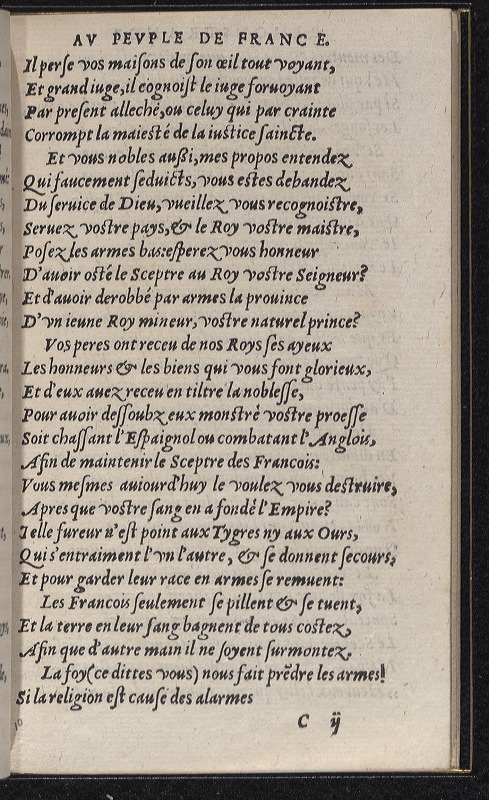 AV PEVPLE DE FRANCE.
Il perse vos maisons de son œil tout voyant,
Et grand iuge, il cognoist le iuge foruoyant
Par present alleché, ou celuy qui par crainte
Corrompt la maiesté de la iustice saincte.
Et vous nobles außi, mes propos entendez,
Qui faucement seduicts, vous estes debandez
Du seruice de Dieu, vueillez vous recognoistre,
Seruez vostre pays, & le Roy vostre maistre,
Posez les armes bas: esperez vous honneur
D'auoir osté le Sceptre au Roy vostre Seigneur?
Et d'auoir derobbé par armes la prouince
D'vn ieune Roy mineur, vostre naturel prince?
Vos peres ont receu de nos Roys ses ayeux
Les honneurs & les biens qui vous font glorieux,
Et d'eux auez receu en tiltre la noblesse,
Pour auoir dessoubz eux monstré vostre proesse
Soit chassant l'Espaignol ou combatant l'Anglois,
Afin de maintenir le Sceptre des Francois:
Vous mesmes auiourd'huy le voulez vous destruire,
Apres que vostre sang en a fondé l'Empire?
Telle fureur n'est point aux Tygres ny aux Ours,
Qui s'entraiment l'vn l'autre, & se donnent secours,
Et pour garder leur race en armes se remuent:
Les Francois seulement se pillent & se tuent,
Et la terre en leur sang bagnent de tous costez,
Afin que d'autre main il ne soyent surmontez.
La foy (ce dittes vous) nous fait prẽdre les armes!
Si la religion est cause des alarmes
C ij